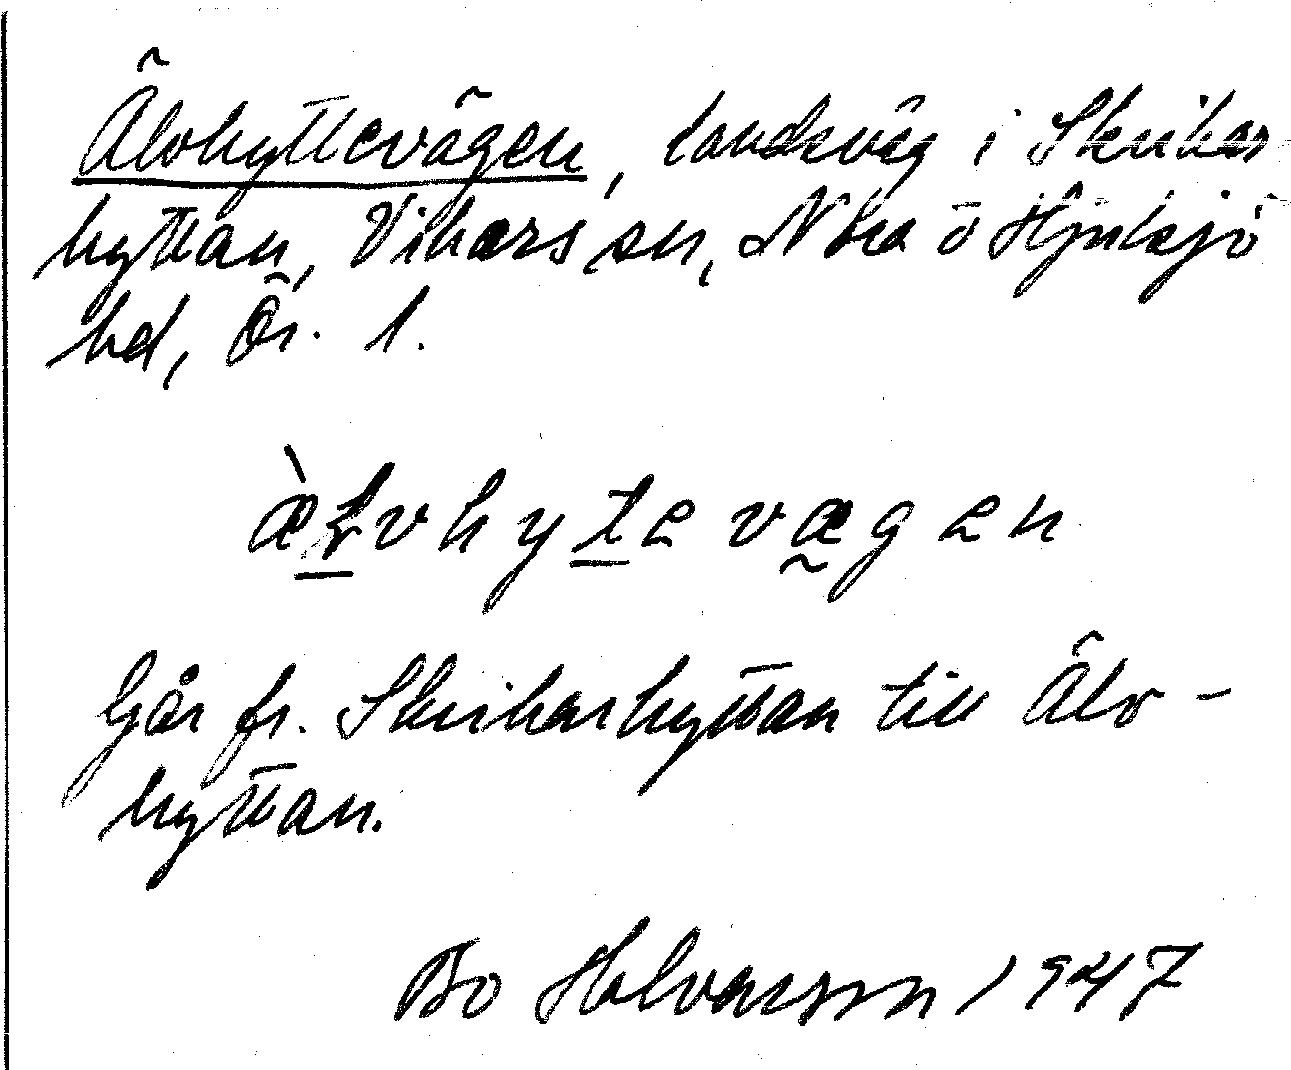 Älvhyttevägen, landsväg i Skrikar
hyttan, Vikers sn, Nora o Hjulsjö
hd, Ör. l.
æ̀ļvhytevægen
Går fr. Skrikarhyttan till Älv-
hyttan.
Bo Halvarsson 1947